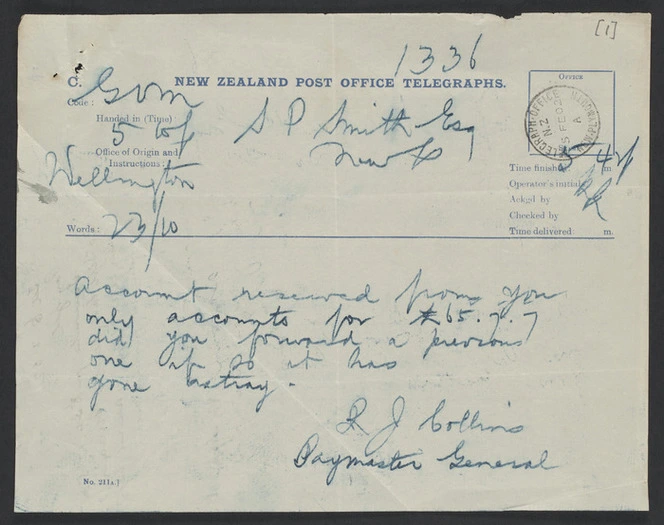 [1]
1336
C. NEW ZEALAND POST OFFICE TELEGRAPHS.
Office
Code: Gvm
Handed in (Time)
S P Smith Esq
TELEGRAPH-OFFICE
N.Z
5 FE 02
A
Office of Origin and
Instructions:
Wellington
Time finished m.
Operator's initials
Ackg'd by
Checked by
Words: 23/10
Time delivered: m.
Account received from you
only accounts for £65.7.7
did you forward a previous
one if so it has
gone astray.
R J Collins
Paymaster General
No. 211A.]